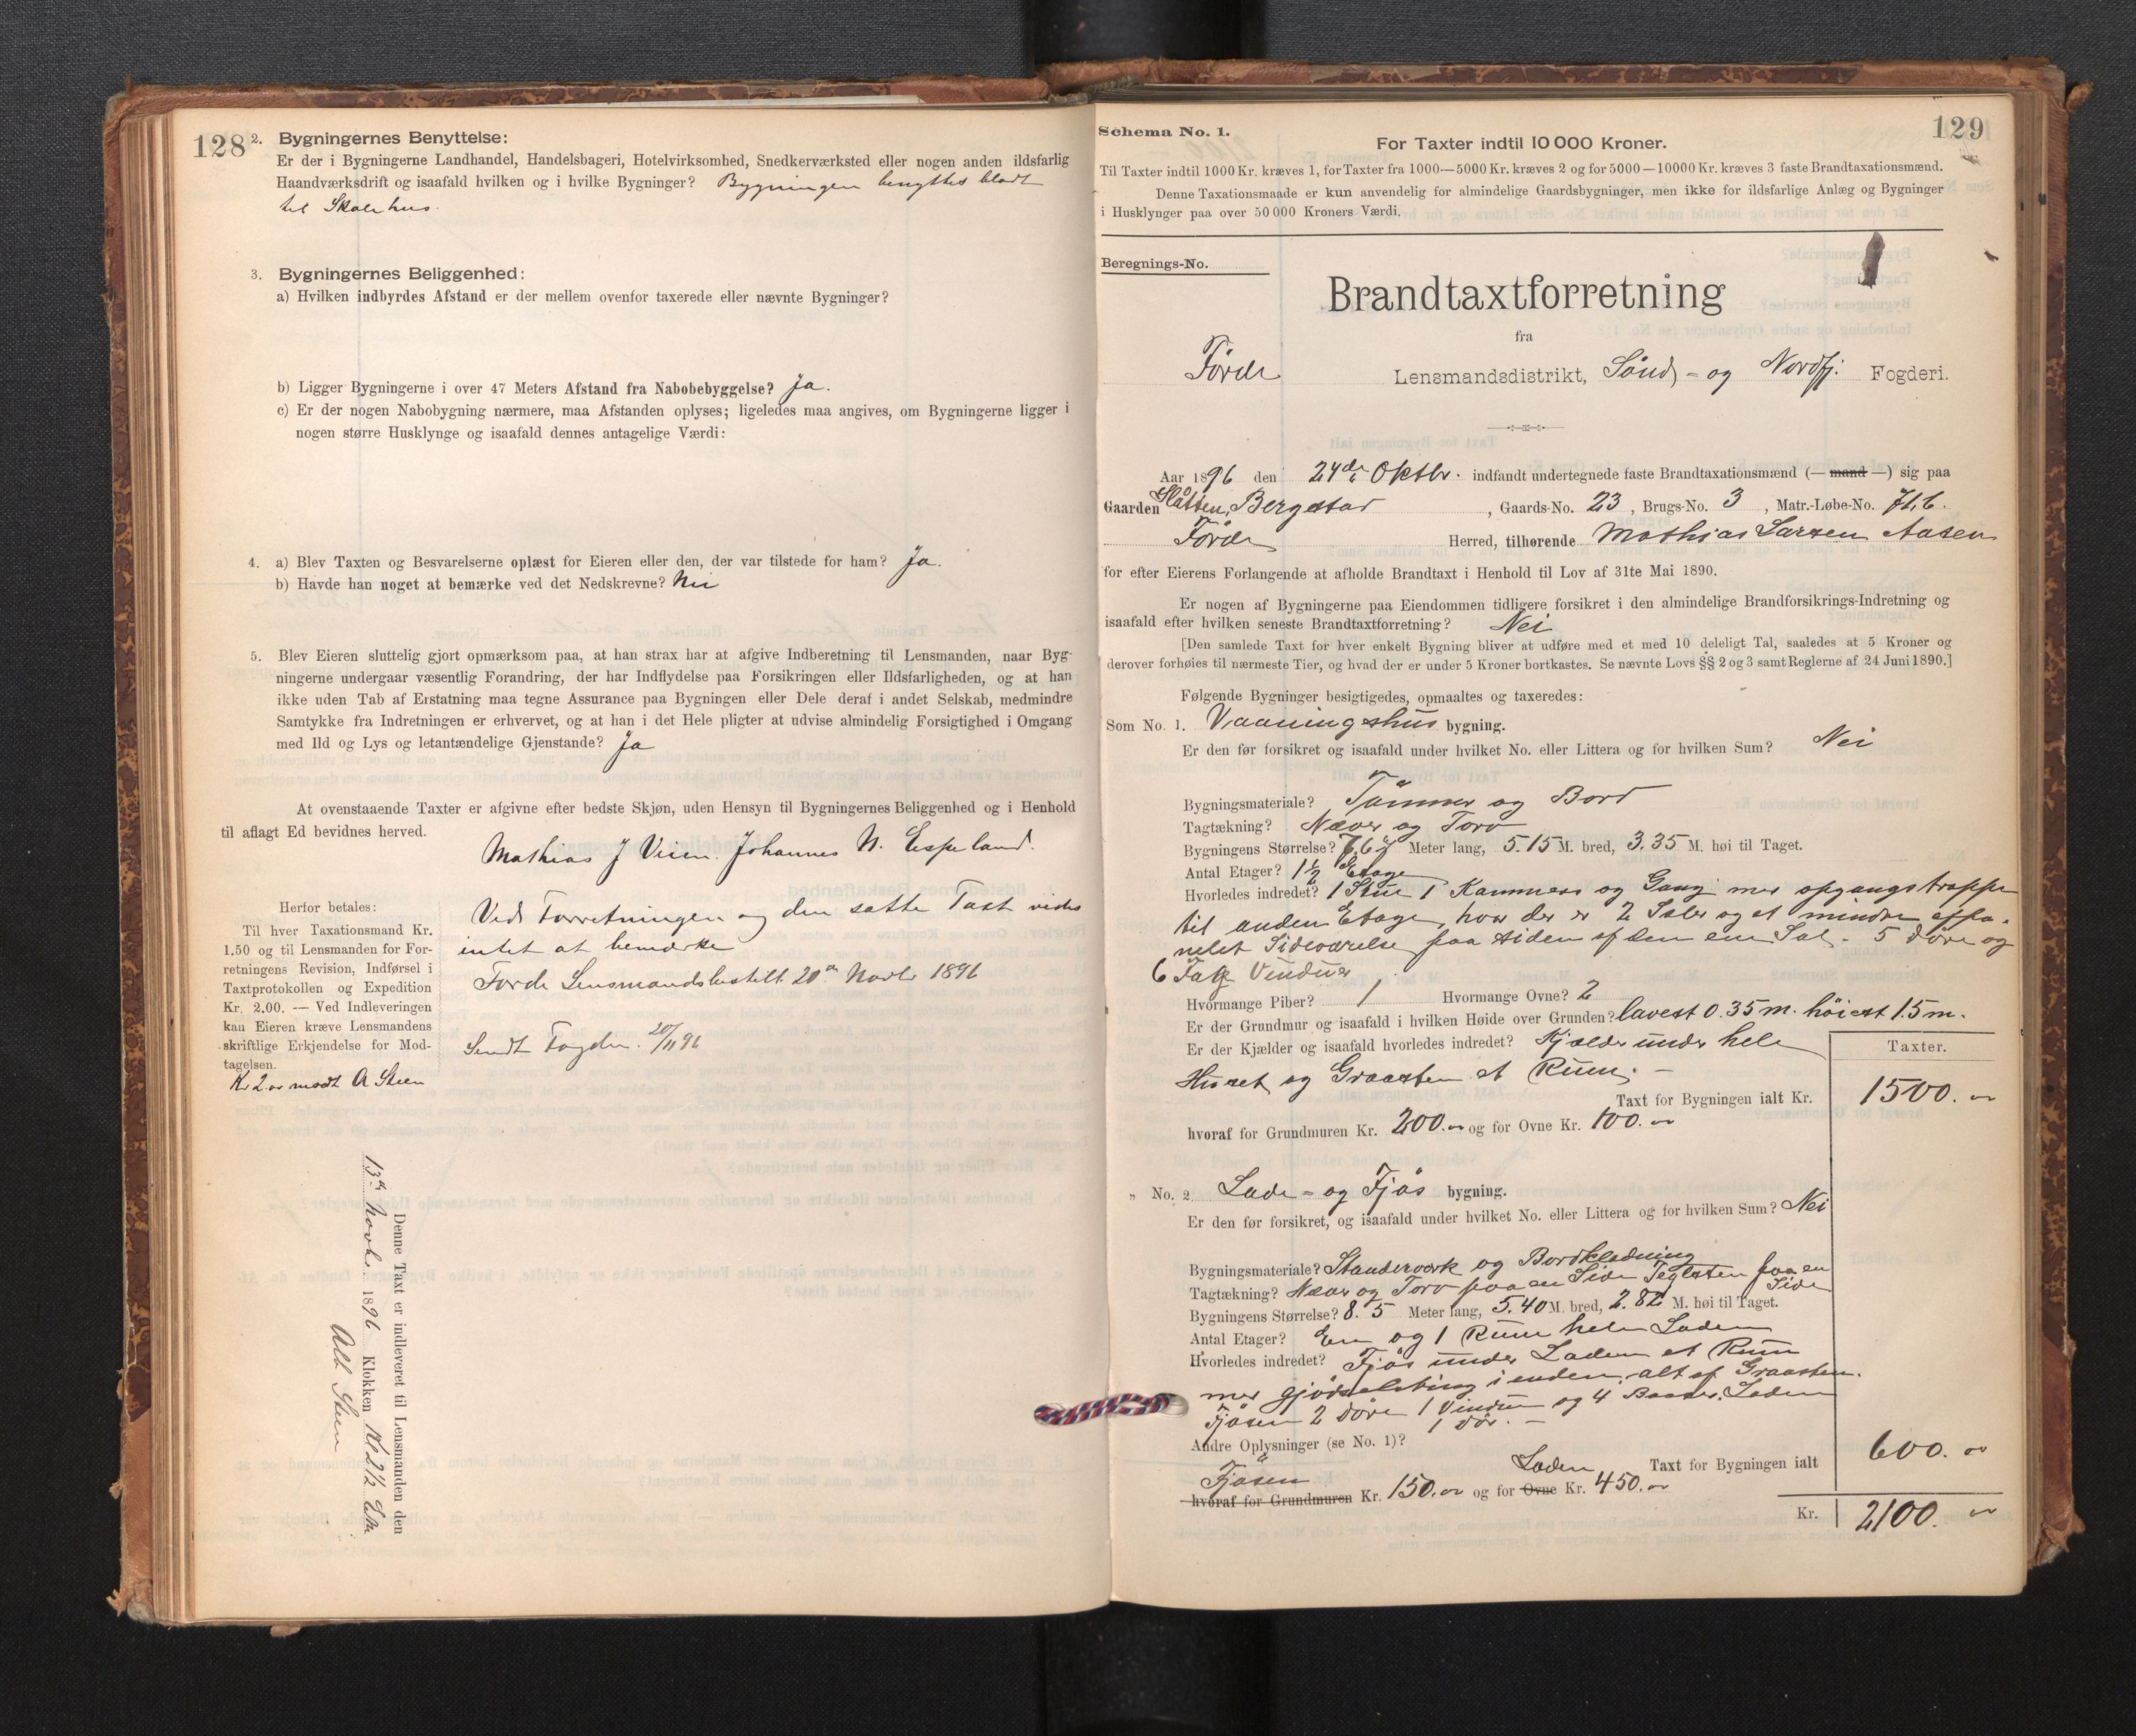 128
2. Bygningernes Benyttelse:
Er der i Bygningerne Landhandel, Handelsbageri, Hotelvirksomhed, Snedkerværksted eller nogen anden ildsfarlig
Haandværksdrift og isaafald hvilken og i hvilke Bygninger? Bygningen benyttes blodt
til Skolehus.
3. Bygningernes Beliggenhed:
a) Hvilken indbyrdes Afstand er der mellem ovenfor taxerede eller nævnte Bygninger?
b) Ligger Bygningerne i over 47 Meters Afstand fra Nabobebyggelse? Ja.
c) Er der nogen Nabobygning nærmere, maa Afstanden oplyses; ligeledes maa angives, om Bygningerne ligger i
nogen større Husklynge og isaafald dennes antagelige Værdi:
4. a) Blev Taxten og Besvarelserne oplæst for Eieren eller den, der var tilstede for ham? Ja.
b) Havde han noget at bemærke ved det Nedskrevne? Nei
5. Blev Eieren sluttelig gjort opmærksom paa, at han strax har at afgive Indberetning til Lensmanden, naar Byg-
ningerne undergaar væsentlig Forandring, der har Indflydelse paa Forsikringen eller Ildsfarligheden, og at han
ikke uden Tab af Erstatning maa tegne Assurance paa Bygningen eller Dele deraf i andet Selskab, medmindre
Samtykke fra Indretningen er erhvervet, og at han i det Hele pligter at udvise almindelig Forsigtighed i Omgang
med Ild og Lys og letantændelige Gjenstande? Ja
At ovenstaaende Taxter er afgivne efter bedste Skjøn, uden Hensyn til Bygningernes Beliggenhed og i Henhold
til aflagt Ed bevidnes herved.
Mathias J Vieen. Johannes N. Espeland.
Herfor betales:
Til hver Taxationsmand Kr.
1.50 og til Lensmanden for For-
retningens Revision, Indførsel i
Taxtprotokollen og Expedition
Kr. 2.00. — Ved Indleveringen
kan Eieren kræve Lensmandens
skriftlige Erkjendelse for Mod-
tagelsen.
Kr 2.00 modt A Steen
Ved Forretningen og den satte Taxt vides
intet at bemærke
Førde Lensmandsbestill. 20de Novbr 1896
Sendt Fogden. 20/11 96
Denne Taxt er indleveret til Lensmanden den
13de Novb. 1896 Klokken Kl 2 1/2 Em
Alb Steen
Schema No. 1.
129
For Taxter indtil 10 000 Kroner.
Til Taxter indtil 1000 Kr. kræves 1, for Taxter fra 1000—5000 Kr. kræves 2 og for 5000—10000 Kr. kræves 3 faste Brandtaxationsmænd.
Denne Taxationsmaade er kun anvendelig for almindelige Gaardsbygninger, men ikke for ildsfarlige Anlæg og Bygninger
i Husklynger paa over 50 000 Kroners Værdi.
Beregnings-No.
Brandtaxtforretning
fra
Førde Lensmandsdistrikt, Sønd- og Nordfj. Fogderi.
Aar 1896 den 24de Oktbr. indfandt undertegnede faste Brandtaxationsmænd (— mand —) sig paa
Gaarden Slåtten, Bergstad, Gaards-No. 23, Brugs-No. 3, Matr.-Løbe-No. 71,b.
Førde Herred, tilhørende Mathias Larsen Aasen
for efter Eierens Forlangende at afholde Brandtaxt i Henhold til Lov af 31te Mai 1890.
Er nogen af Bygningerne paa Eiendommen tidligere forsikret i den almindelige Brandforsikrings-Indretning og
isaafald efter hvilken seneste Brandtaxtforretning? Nei
[Den samlede Taxt for hver enkelt Bygning bliver at udføre med et med 10 deleligt Tal, saaledes at 5 Kroner og
derover forhøies til nærmeste Tier, og hvad der er under 5 Kroner bortkastes. Se nævnte Lovs §§ 2 og 3 samt Reglerne af 24 Juni 1890.]
Følgende Bygninger besigtigedes, opmaaltes og taxeredes:
Som No. 1. Vaaningshus bygning.
Er den før forsikret og isaafald under hvilket No. eller Littera og for hvilken Sum? Nei
Bygningsmateriale? Tømmer og Bord
Tagtækning? Næver og Torv
Bygningens Størrelse? Meter lang, 5.15 M. bred, 3.35 M. høi til Taget.
Antal Etager? 1½ Etage
Hvorledes indredet? 1 Stue 1 Kammers og Gang med opgangstrappe
til anden Etage, hvor der er 2 Sale og et mindre
nelet Sideværelse paa siden af den ene Sal. 5 døre og
6 Fag Vinduer
Hvormange Piber? 1 Hvormange Ovne? 2
Er der Grundmur og isaafald i hvilken Høide over Grunden? lavest 0.35 m. høiest 1.5 m.
Er der Kjælder og isaafald hvorledes indredet? Kjælder under hele
Huset og Graasten et Rum. —
Taxter.
Taxt for Bygningen ialt Kr. 1500. 00
hvoraf for Grundmuren Kr. 200.00 og for Ovne Kr. 100.00
" No. 2 Lade- og Fjøs bygning.
Er den før forsikret, og isaafald under hvilket No. eller Littera og for hvilken Sum? Nei
Bygningsmateriale? Standerværk og Bordklædning
Tagtækning? Næver og Torv paa en Side Teglsten paa en Side
Bygningens Størrelse? 8.5 Meter lang, 5.40 M. bred, 2.82 M. høi til Taget.
Antal Etager? En og 1 Rum hele Laden
Hvorledes indredet? Fjøs under Laden et Rum
med gjødselsbing i enden, alt af Graasten.
Fjøsen 2 Døre 1 Vindue og 4 Baaser. Laden
1 dør. —
Andre Oplysninger (se No. 1)?
Fjøsen Laden Taxt for Bygningen ialt 600. 00
hvoraf for Grundmuren Kr. 150.00 og for Ovne Kr. 450.00
Kr. 2100. 00